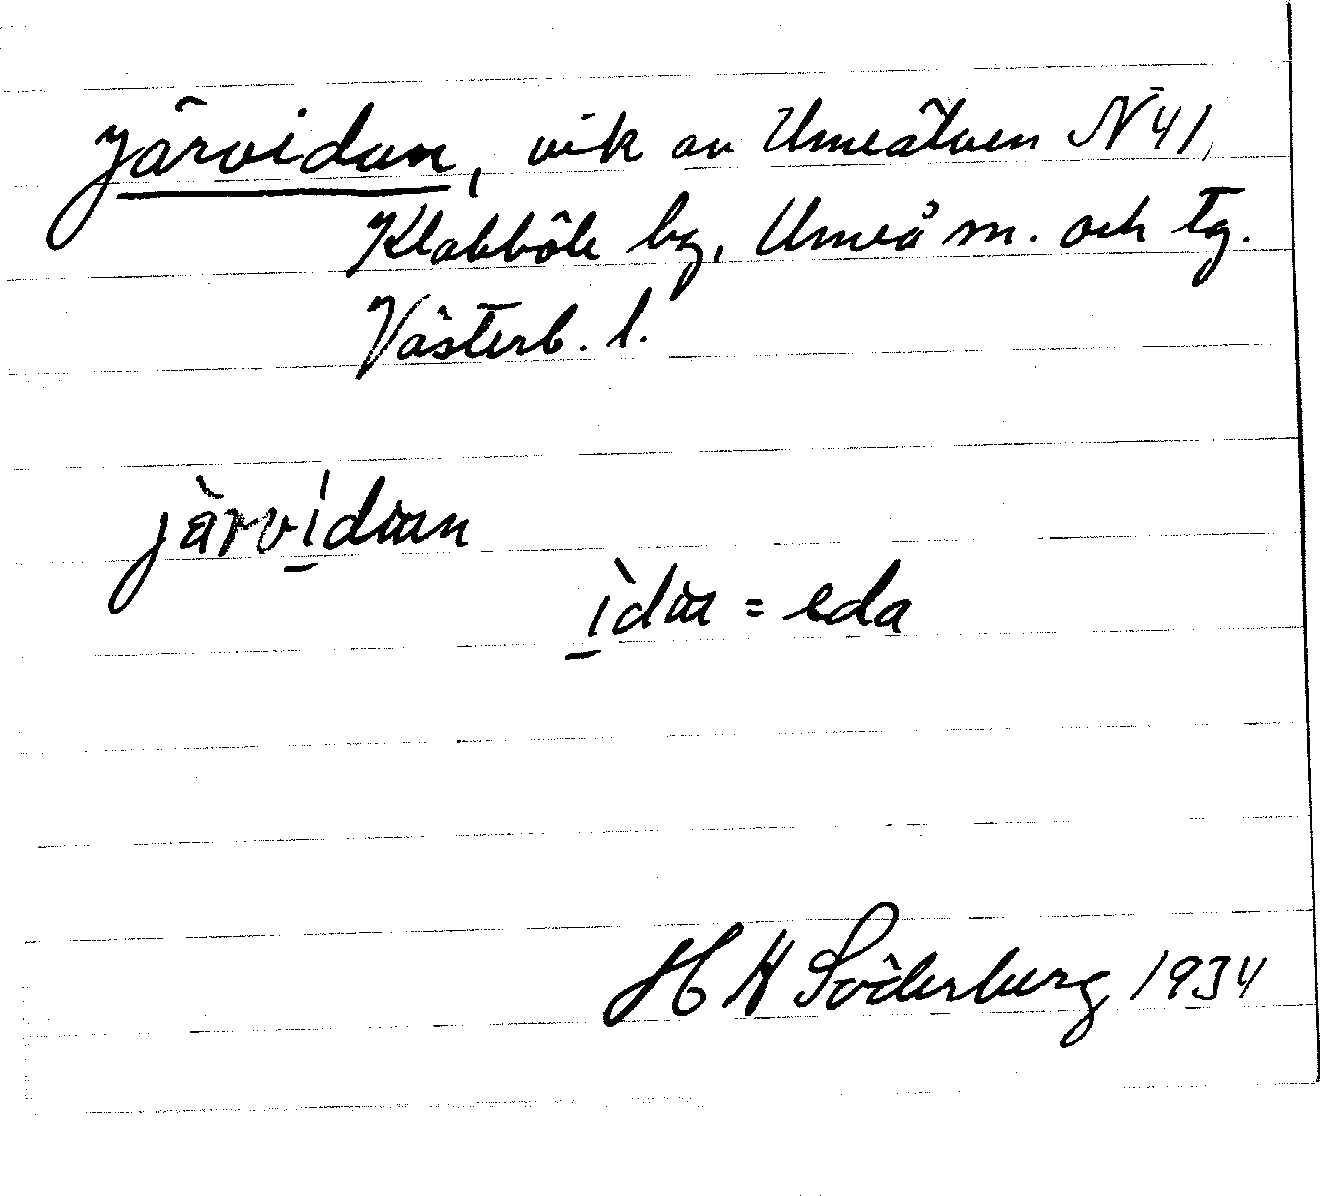 Järvidan, vik av Umeälven N 41,
Klabböle by, Umeå sn. och tg.
Västerb. l.
järvidan
ida = eda
H W Söderberg 1934